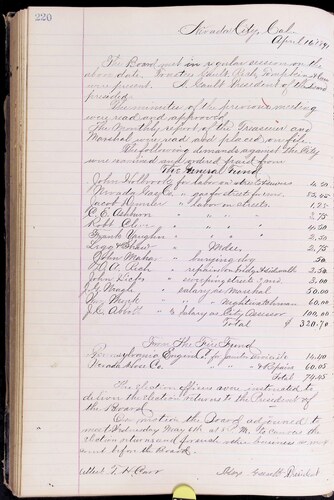 220
Nevada City, Cal
April 16th 1891
The Board met in regular session on the
above date. Trustees Gault, Rich,
were present. A. Gault President of the Board
presiding.
The minutes of the previous meeting
were read and approved.
The Monthly report of the Treasurer and
Marshal were read and placed on file.
The following demands against the City
were examined and ordered paid from
The General Fund
John Holbrook for labor on streets 4.50
Nevada Gas Co " gas for streets
Jacob " labor on streets 1.75
C. E. Ashburn " " " 2.75
Robt Cline " " " 4.50
Frank " " " 2.50
Legg & Shaw " 2.75
John " burying dog .50
" repairs on bridge & sidewalk 2.50
John " sweeping streets 3.00
" salary as Marshal 50.00
" " " Nightwatchman 60.00
" salary as City Assessor 100.00
Total $ 320.70
From the Fire Fund
Pennsylvania Engine Co for 14.40
Nevada Hose Co " " & Repairs 60.05
Total 74.45
The election officers were instructed to
deliver the election returns to the President of
the Board.
On motion the Board adjourned to
meet Wednesday May 6th at M. to canvass the
election returns and for such other business as may
come before the Board.
Attest T. H. Carr Alex Gault President